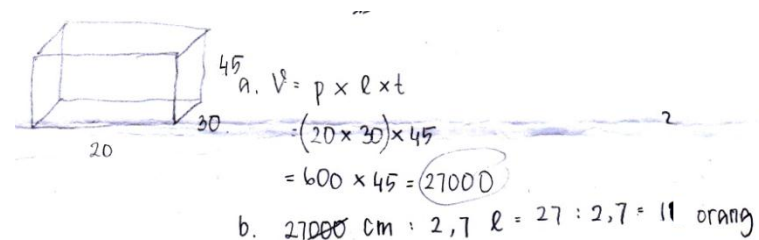 45
30
20
a. V = p x l x t
= (20 x 30) x 45
= 600 x 45 = 27000
2
b. 27000 cm : 2,7 l = 27 : 2,7 = 11 orang